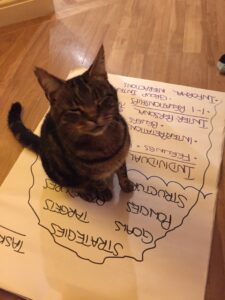 TASK
STRATEGIES
GOALS
TARGETS
POLICIES
STRUCTURES
INDIVIDUAL
· FEELINGS
· INTERPRETATION
· BELIEFS
INTER PERSONAL
· 1-1 RELATIONSHIPS
· GROUP
· INFORMAL INTERACTIONS